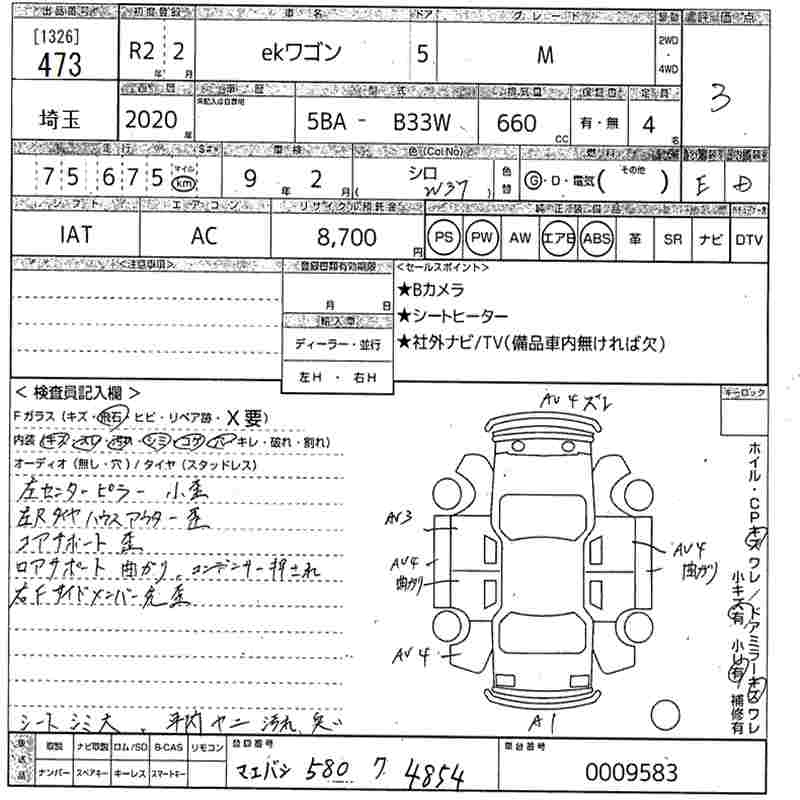 出品番号 初度登録 車名 ドア グレード 駆動 総評価点
[1326] 473 R2 年 2 月 ekワゴン 5 M 2WD・4WD 3
埼玉 2020 年 未記入は自家用 型式 5BA - B33W 排気量 660 cc 保証書 有・無 定員 4 名
走行 75,675 マイル km 車検 9 年 2 月 色(Col No) シロ W37 色替 燃料 G・D・電気( その他 ) E D
シフト エアコン リサイクル預託金 純正装備品
IAT AC 8,700 円 PS PW AW エアB ABS 革 SR ナビ DTV
<注意事項> 登録書類有効期限 <セールスポイント>
月 日 ★Bカメラ
輸入車 ★シートヒーター
ディーラー・並行 ★社外ナビ/TV(備品車内無ければ欠)
左H ・ 右H
< 検査員記入欄 > キーロック
Fガラス (キズ・飛石 ヒビ・リペア跡・X要)
内装 (キズ・ヨレ・汚れ・シミ・コゲ・穴・キレ・破れ・割れ)
オーディオ (無し・穴) / タイヤ (スタッドレス)
左センターピラー 小歪
左Rタイヤハウスアウター 歪
コアサポート 歪
ロアサポート 曲がり、コンデンサー押され
右Fサイドメンバー先 歪
シート シミ大、
ヤニ 汚れ
AU4 ズレ
AU3
AU4 曲がり
AU4 曲がり
AU4
A1
ホイル・CPキズ ワレ/ドアミラーキズ ワレ
小キズ有 小U有 補修有
後送品 取説 ナビ取説 ロム/SD B-CAS リモコン 登録番号 車台番号
ナンバー スペアキー キーレス スマートキー マエバシ 580 ワ 4854 0009583